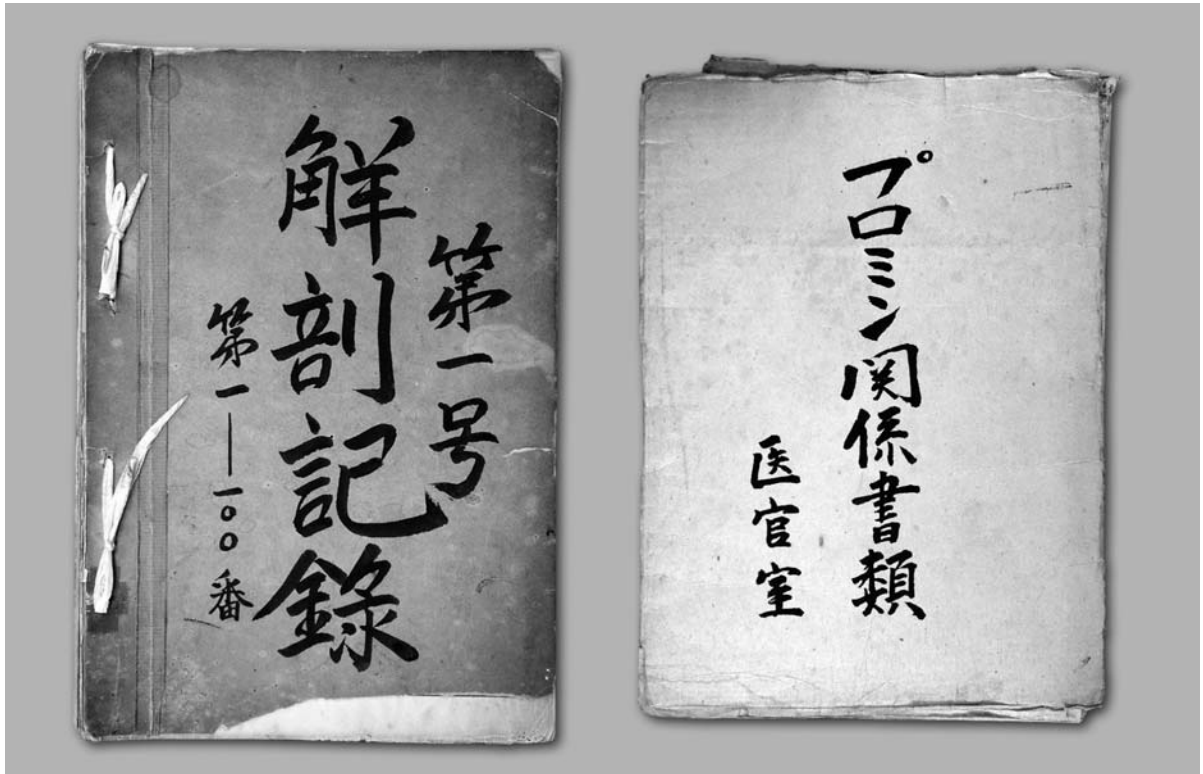 第一号
解剖記録
第一―一〇〇番
プロミン関係書類
医官室